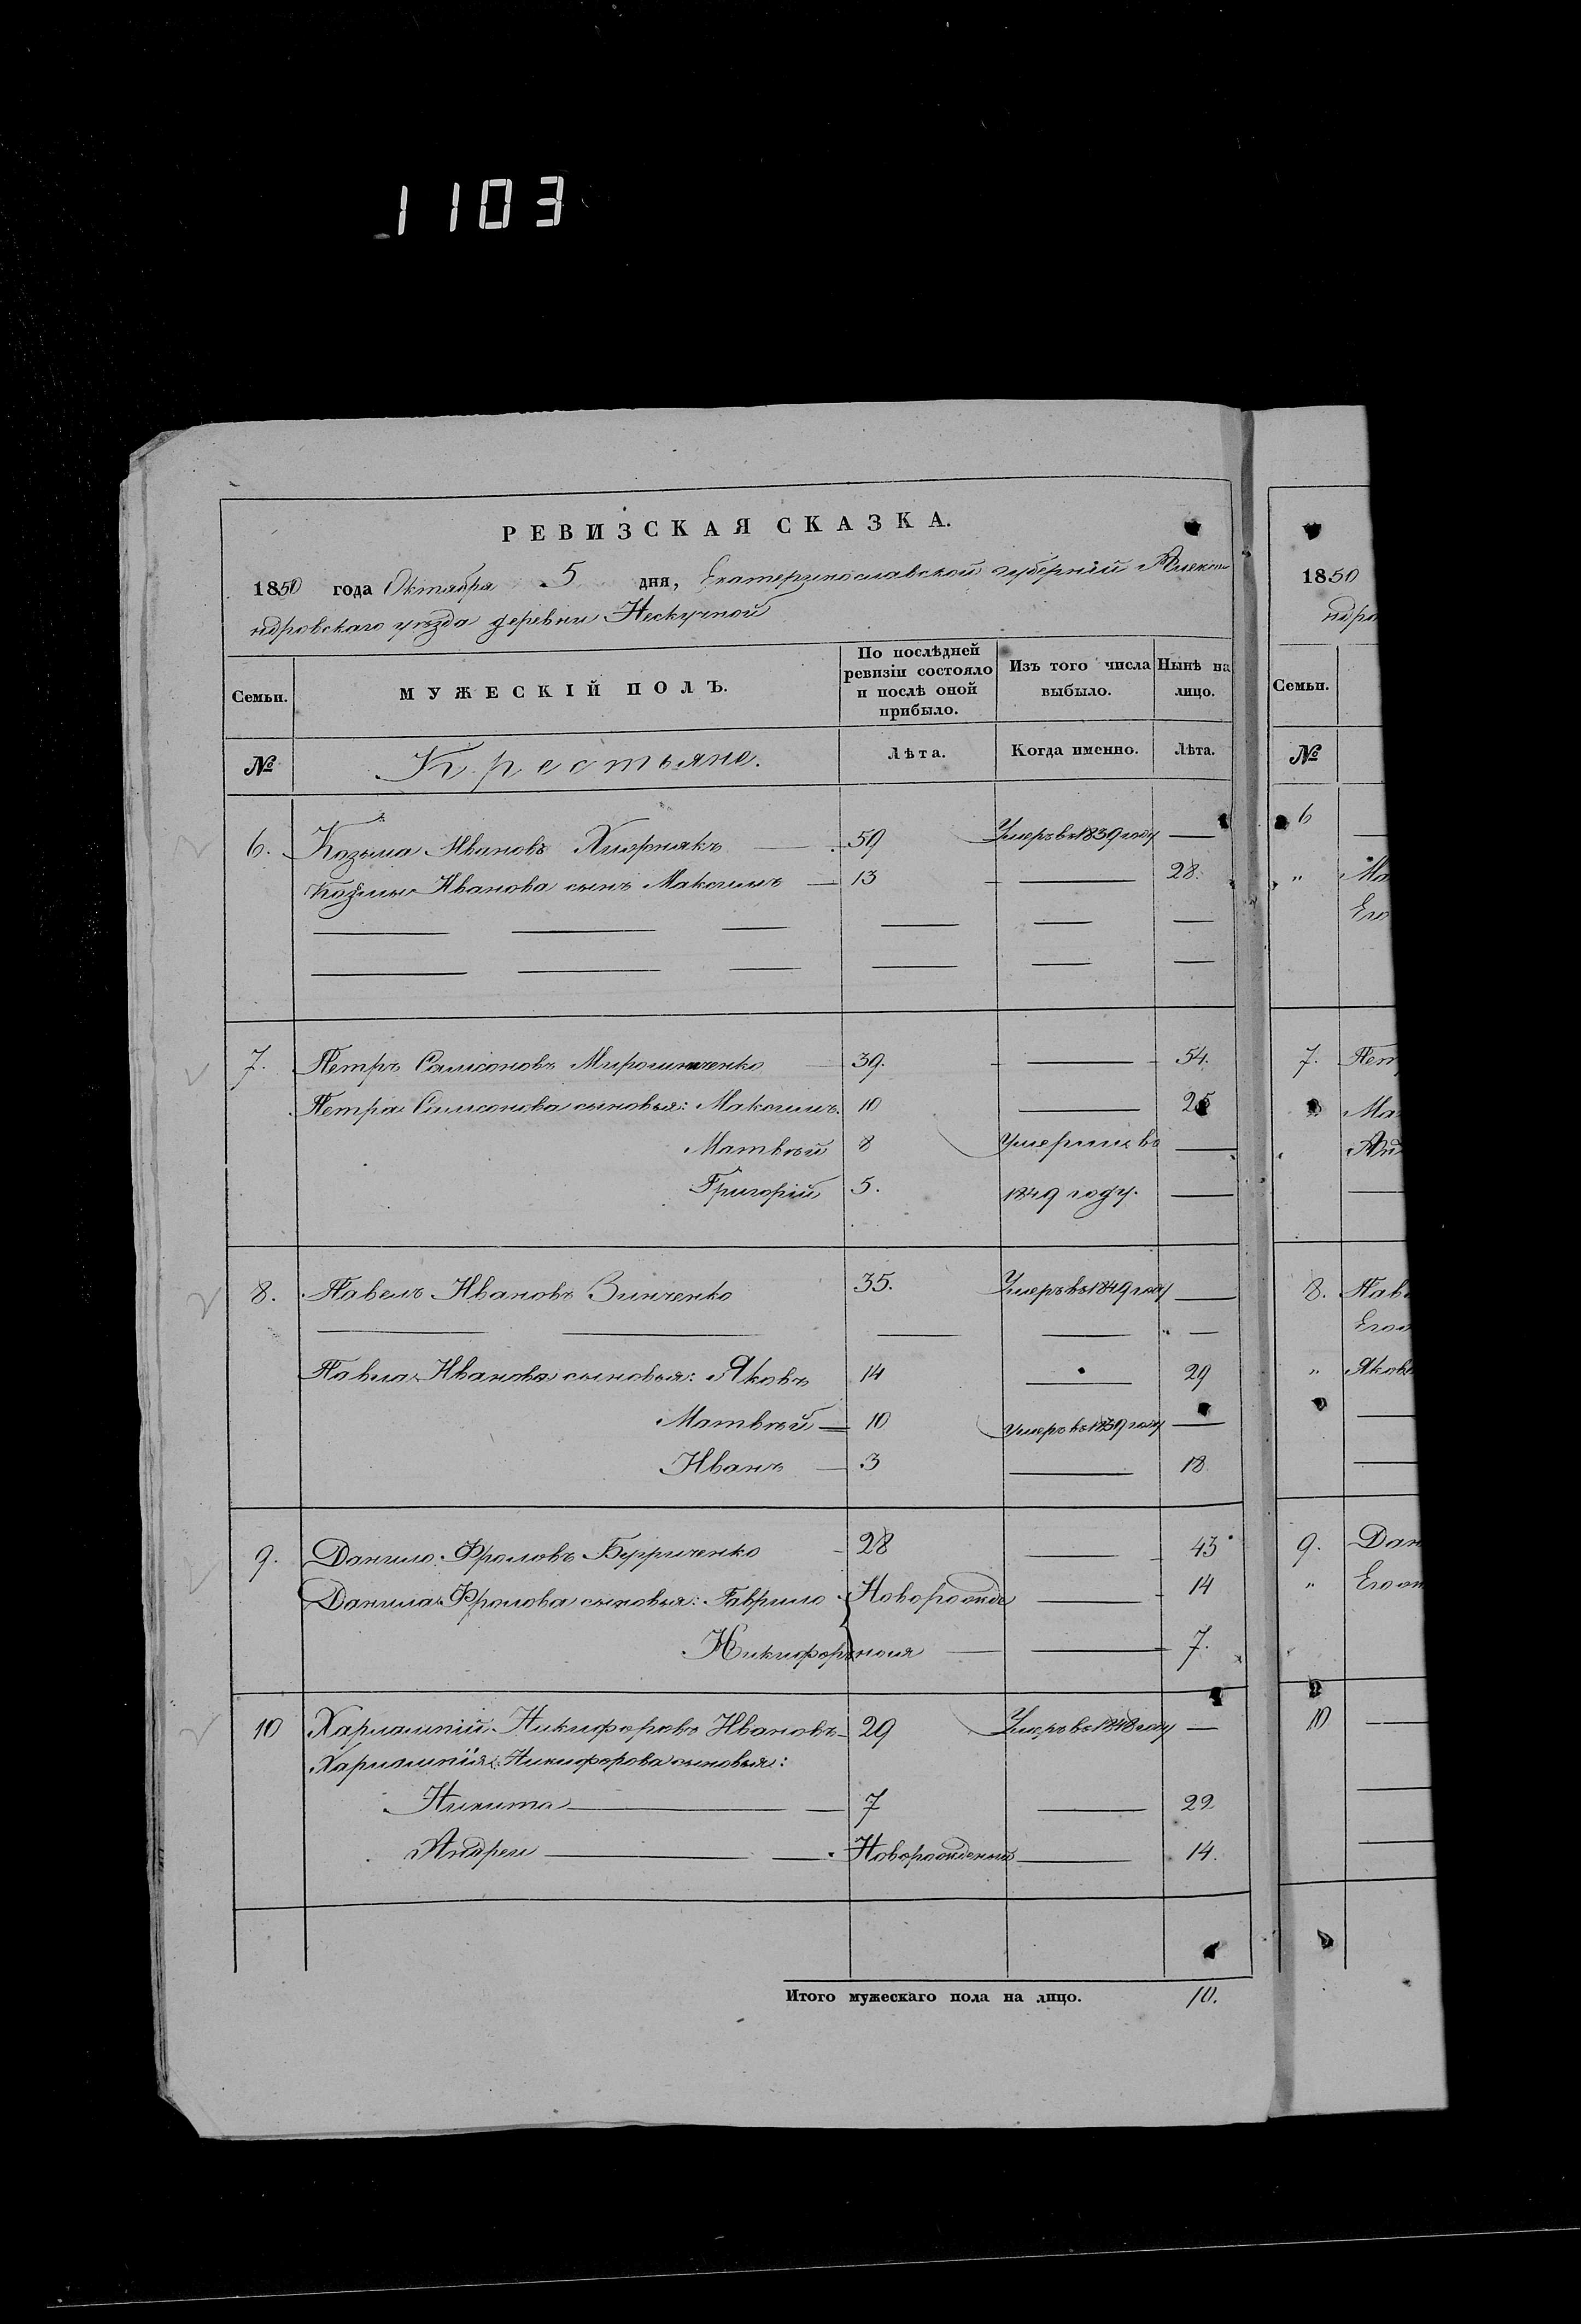 1103
РЕВИЗСКАЯ СКАЗКА.
1850 года Октября 5 дня, Екатеринославской губерніи Алекса-
ндровскаго уѣзда деревни Нескучной
Семьи. МУЖЕСКІЙ ПОЛЪ. По послѣдней ревизіи состояло и послѣ оной прибыло. Изъ того числа выбыло. Нынѣ на лицо.
№ Крестьяне. Лѣта. Когда именно. Лѣта.
6. Козьма Ивановъ 59 Умеръ въ 1839 году —
Козьмы Иванова сынъ Максимъ — 13 — 28.
7. Петръ Самсоновъ Мирошниченко 39. — 54.
Петра Самсонова сыновья: Максимъ. 10 — 25
Матвѣй 8 Умерли въ —
Григорій 5. 1849 году. —
8. Павелъ Ивановъ Зинченко 35. Умеръ въ 1849 году —
Павла Иванова сыновья: Яковъ 14 — 29
Матвѣй — 10 Умеръ въ 1839 году —
Иванъ — 3 — 18
9. Данило Фроловъ 28 — 43
Данила Фролова сыновья: Гаврило Новорожде — 14
Никифоръ ныя — — 7.
10 Харлампій Никифоровъ Ивановъ 29 Умеръ въ 1848 году —
Харлампія Никифорова сыновья:
Никита — 7 — 22
Андрей — Новорожденный — 14.
Итого мужескаго пола на лицо. 10.
1850
ндро
Семьи.
№
6
" Ма
Его
7. Пет
Ма
8. Пав
Его
" Яковъ
9. Дан
" Его
10